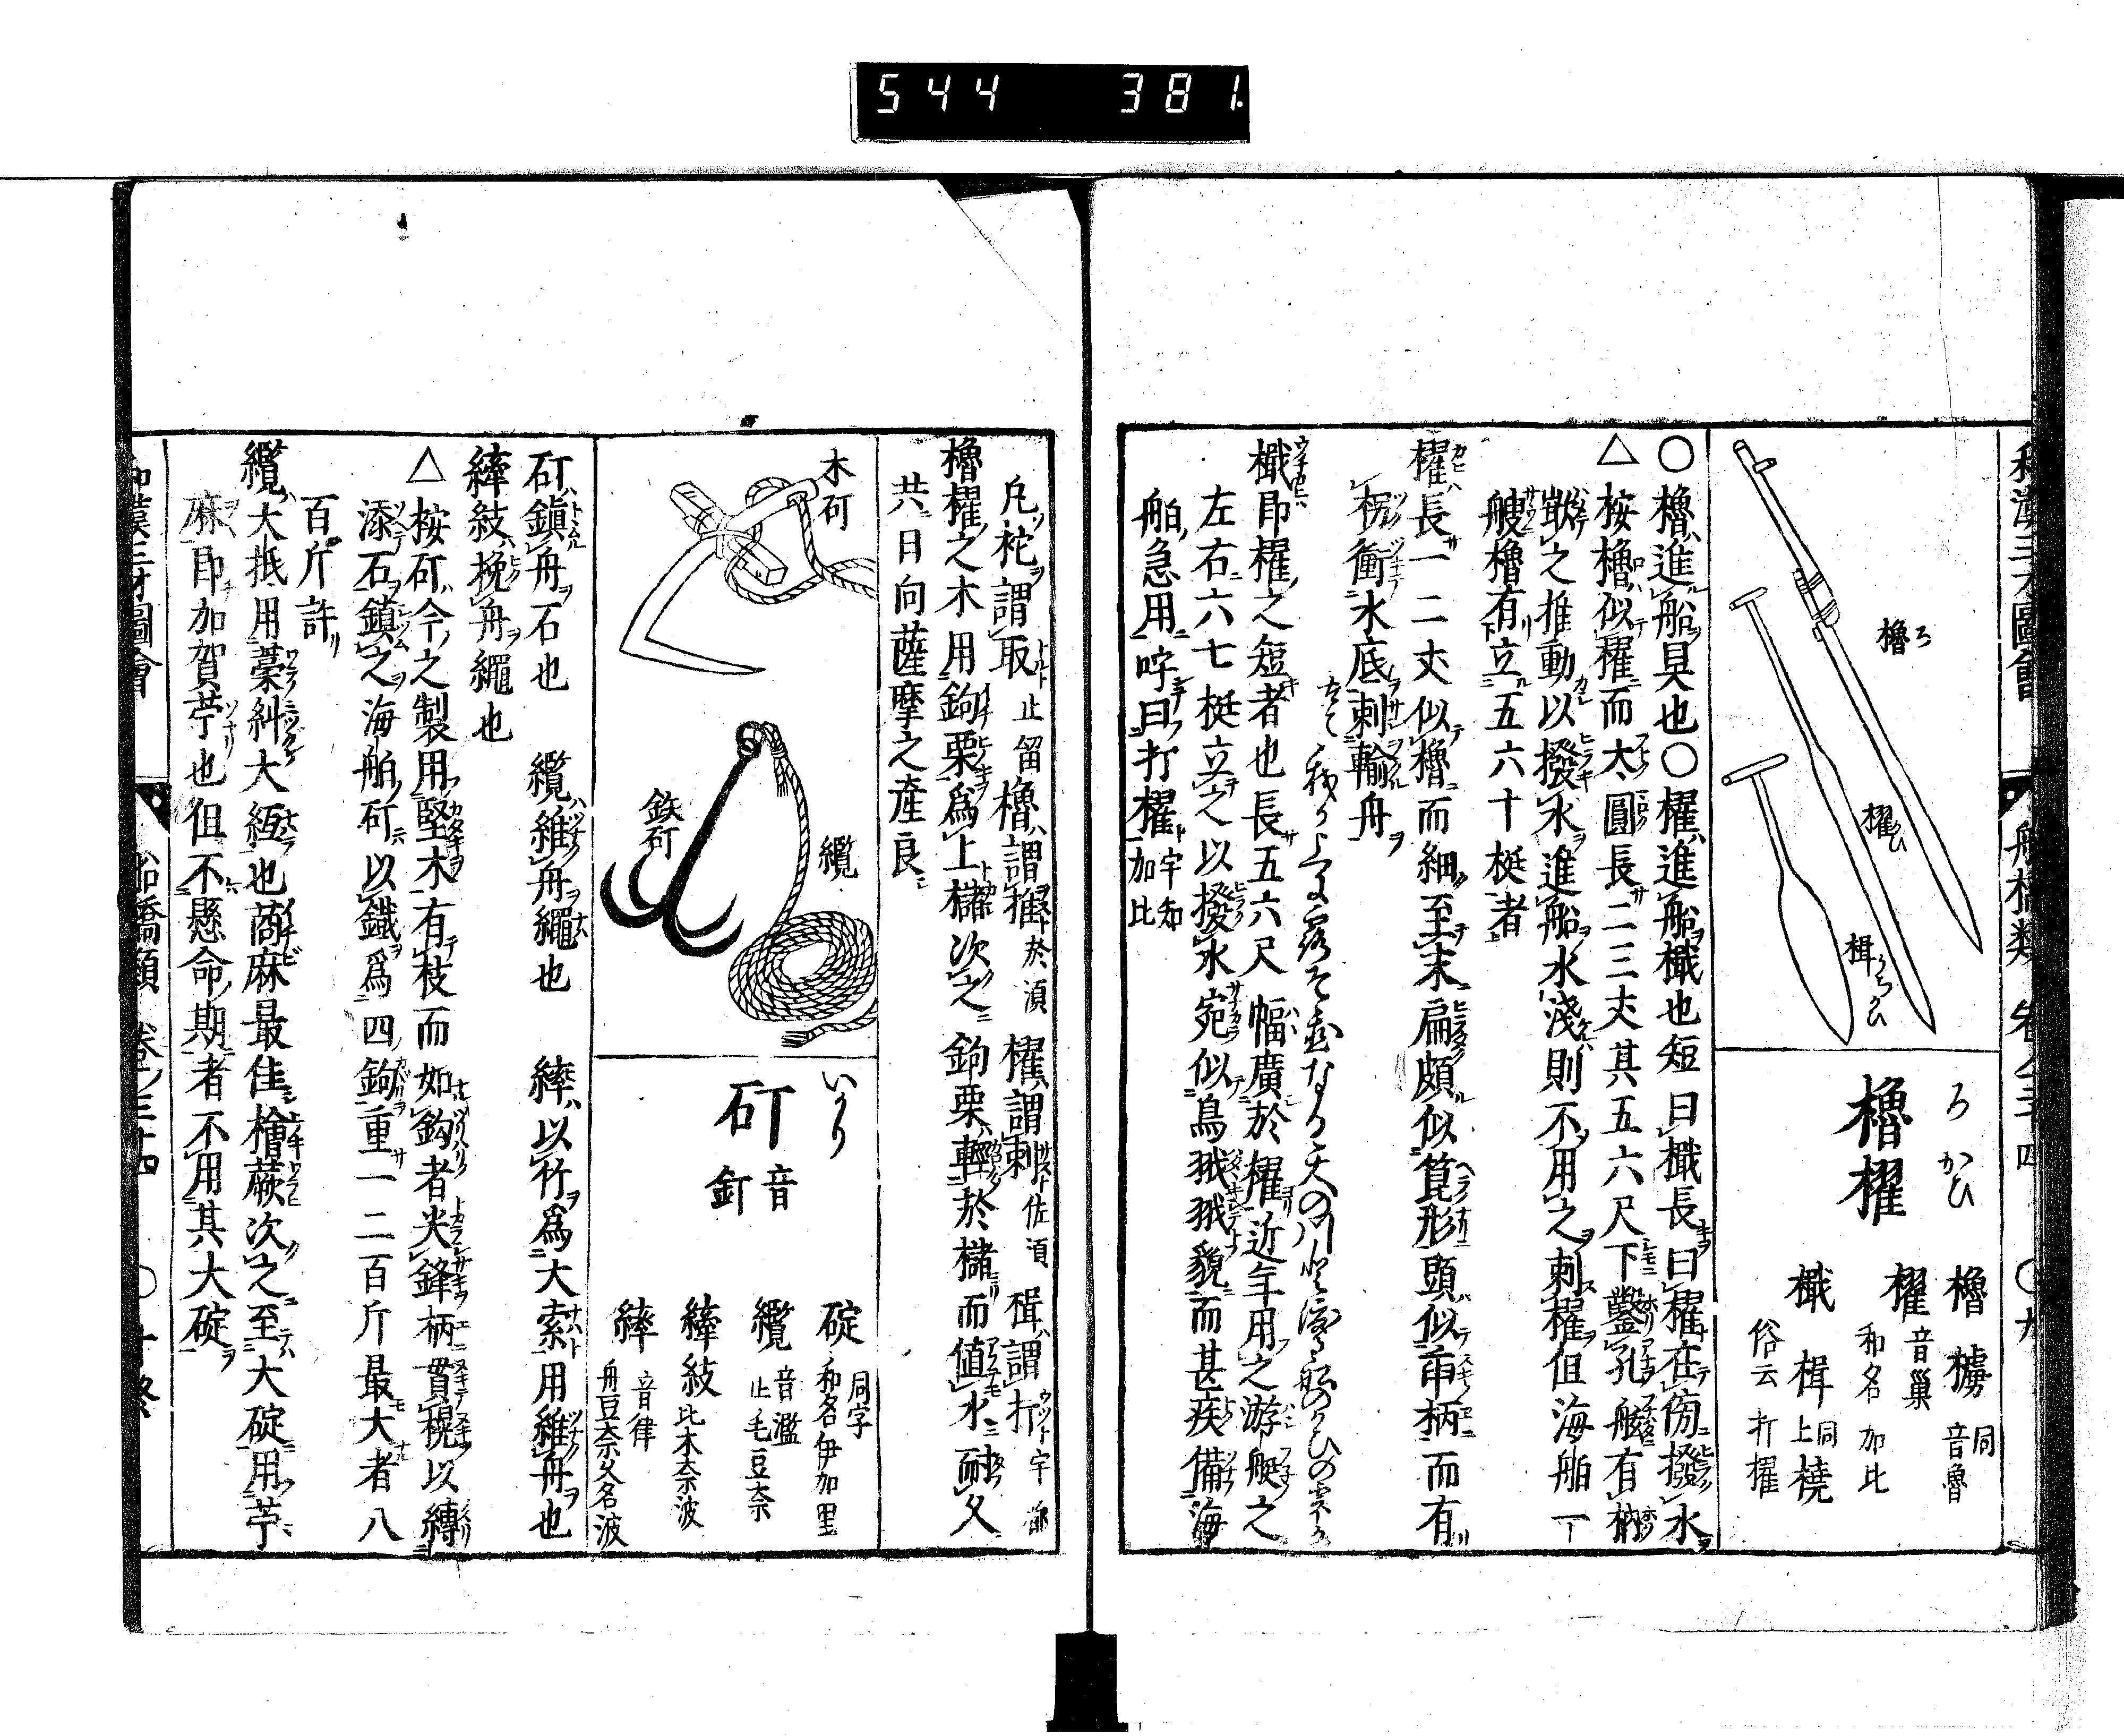 544 381
和漢三才圖會 船橋類 卷之三十四 ○十九
櫓 ろ
櫂 かひ
楫 うちかひ
ろ かひ
櫓櫂
櫓 艣 同 音魯
櫂 音巢 和名 加比
樴 楫 上同 橈
俗云 打櫂
○櫓進船具也○櫂進船樴也短曰樴長曰櫂在傍撥水
△按櫓似櫂而太圓長二三丈其五六尺下鑿孔艫有枘
嵌之推動以撥水進船水淺則不用之刺櫂但海舶一
艘櫓有立五六十梃者
櫂長一二丈似櫓而細至末扁頗似箆形頭似鍤柄而有
柺衝水底刺輸舟
樴卽櫂之短者也長五六尺幅廣於櫂近年用之游艇之
左右六七梃立之以撥水宛似鳥翄翄貌而甚疾備海
舶急用呼曰打櫂宇知加比
凡柁謂取止留櫓謂推於須櫂謂刺佐須楫謂打宇都
櫓櫂之木用鉤栗爲上櫧次之鉤栗輕於櫧而値水耐久
共日向薩摩之産良
木矴
鉄矴
纜
いかり
矴 音釘
碇 同字 和名伊加里
纜 音濫 止毛豆奈
繂紋 比木奈波
繂 音律 舟豆奈久名波
矴鎭舟石也 纜維舟繩也 繂以竹爲大索用維舟也
繂紋挽舟繩也
△按矴今之製用堅木有枝而如鈎者尖鋒柄貫槻以縛
添石鎭之海舶矴以鐵爲四鉤重一二百斤最大者八
百斤許
纜大抵用藁糾大絙也䔛麻最佳檜蕨次之至大碇用苧
麻卽加賀苧也但不懸命期者不用其大碇
和漢三才圖會 船橋類 卷之三十四 ○十終